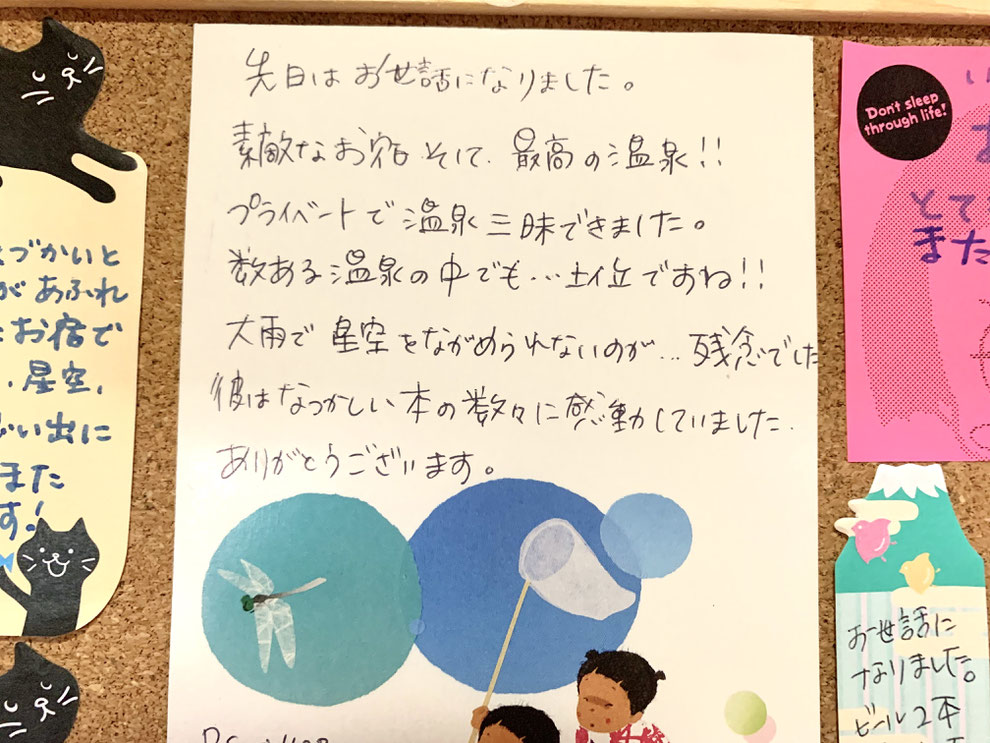 先日はお世話になりました。
素敵なお宿そして、最高の温泉!!
プライベートで温泉三昧できました。
数ある温泉の中でも…ですね!!
大雨で星空をながめられないのが…残念でした
彼はなつかしい本の数々に感動していました.
ありがとうございます。
づかいと
があふれ
お宿で
星空、
い出に
また
す!
Don't sleep
through life!
とて
また
お世話に
なりました。
ビール2本